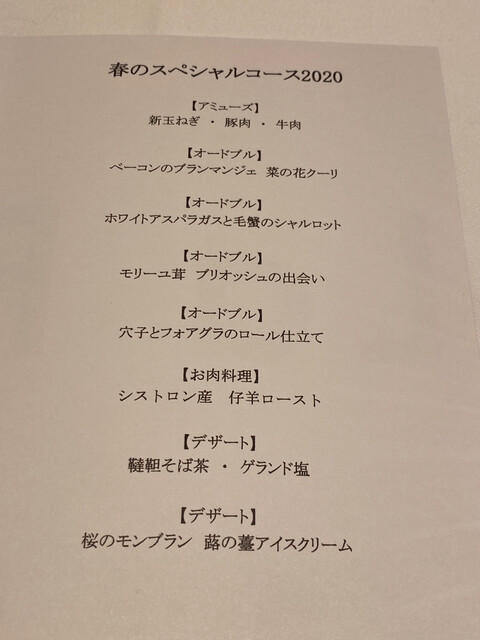 春のスペシャルコース2020
【アミューズ】
新玉ねぎ ・ 豚肉 ・ 牛肉
【オードブル】
ベーコンのブランマンジェ 菜の花クーリ
【オードブル】
ホワイトアスパラガスと毛蟹のシャルロット
【オードブル】
モリーユ茸 ブリオッシュの出会い
【オードブル】
穴子とフォアグラのロール仕立て
【お肉料理】
シストロン産 仔羊ロースト
【デザート】
韃靼そば茶 ・ ゲランド塩
【デザート】
桜のモンブラン 蕗の薹アイスクリーム